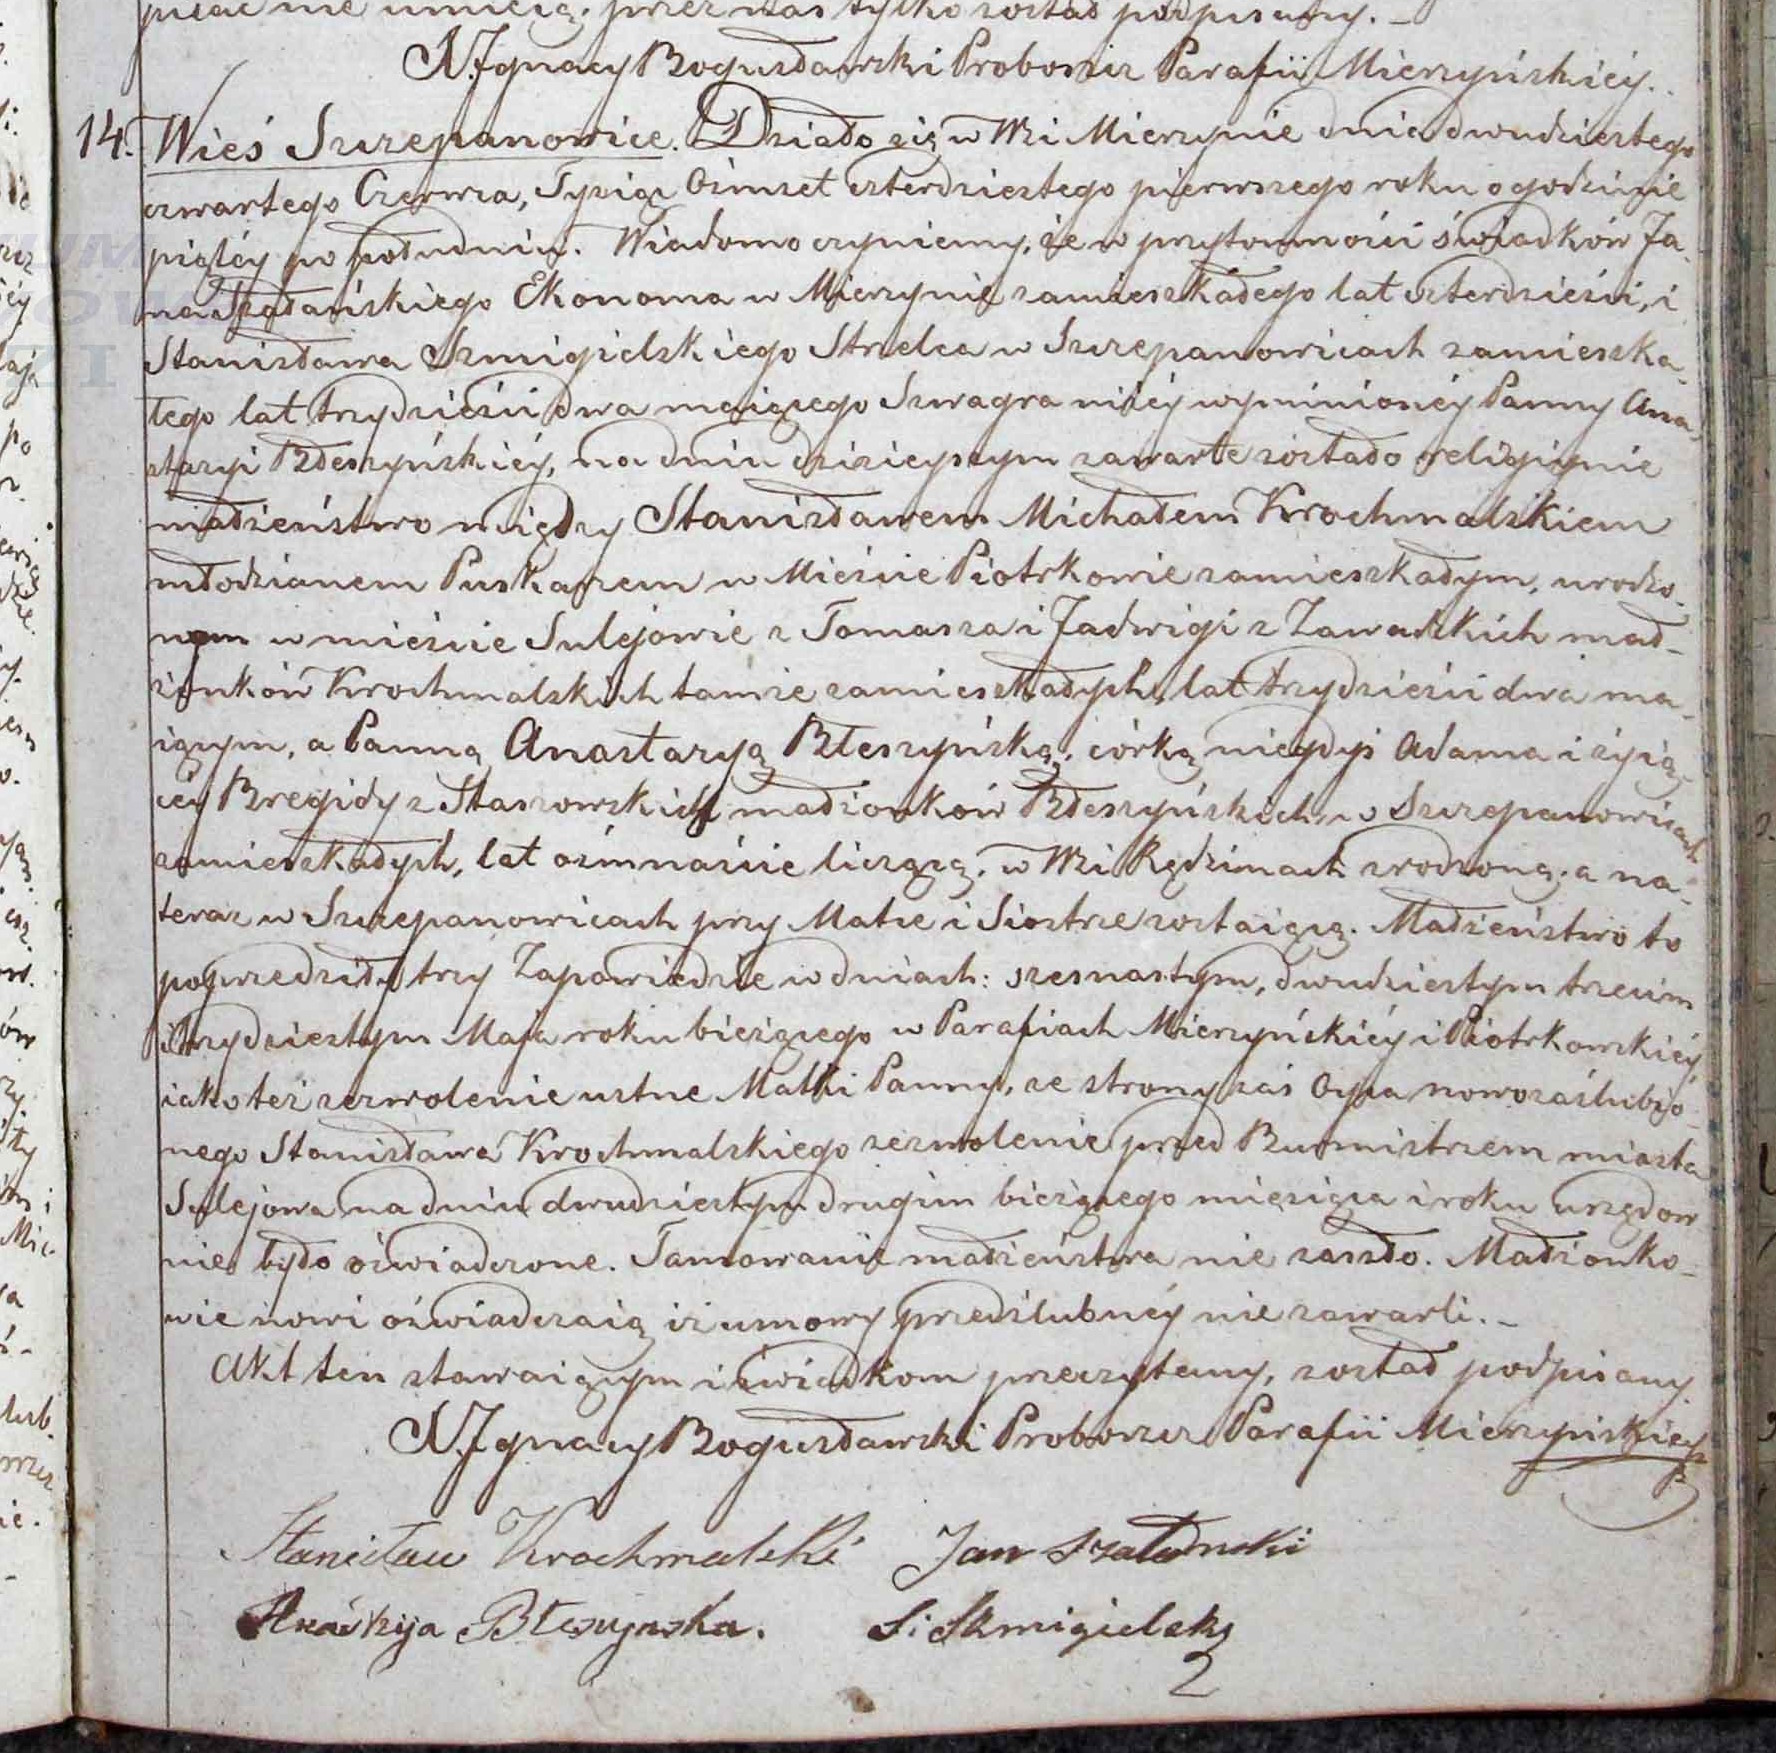 pisać nie umieią, przez nas tylko został podpisany. –
X Ignacy Bogusławski Proboszcz Parafii Mierzyńskiéy.
14. Wieś Szczepanowice. Działo się w Wsi Mierzynie dnia dwudziestego
czwartego Czerwca, Tysiąc Ośmset czterdziestego pierwszego roku o godzinie
piątéy po południu. Wiadomo czyniemy, że w przytomności świadków Ja-
na Szadańskiego Ekonoma w Mierzynie zamieszkałego lat czterdzieści, i
Stanisława Szmigielskiego Strzelca w Szczepanowicach zamieszka-
łego lat trzydzieści dwa maiącego Szwagra niżéy wymienionéy Panny Ana-
stazyi Błeszyńskiéy, na dniu dzisieyszym zawarte zostało religiynie
małżeństwo między Stanisławem Michałem Krochmalskiem
młodzianem Puszkarzem w Mieście Piotrkowie zamieszkałym, urodzo-
nym w mieście Sulejowie z Tomasza i Jadwigi z Zawadzkich mał-
żonków Krochmalskich tamże zamieszkałych, lat trzydzieści dwa ma-
iącym, a Panną Anastazyą Błeszyńską, córką niegdyś Adama i żyią-
céy Bregidy z Staszowskich małżonków Błeszyńskich, w Szczepanowicach
zamieszkałych, lat ośmnaście liczącą, w Wsi Kędzimach zrodzoną, a na-
teraz w Szczepanowicach przy Matce i Siostrze zostaiącą. Małżeństwo to
poprzedziły trzy Zapowiedzie w dniach: szesnastym, dwudziestym trzecim
i trzydziestym Maja roku bieżącego w Parafiach Mierzyńskiéy i Piotrkowskiéy
iako też zezwolenie ustne Matki Panny, ze strony zaś Oyca nowozaślubio-
nego Stanisława Krochmalskiego zezwolenie przed Burmistrzem miasta
Sulejowa na dniu dwudziestym drugim bieżącego miesiąca i roku urzędow
nie było oświadczone. Tamowanie małżeństwa nie zaszło. Małżonko-
wie nowi oświadczaią iż umowy przedślubnéy nie zawarli. –
Akt ten stawaiącym i świadkom przeczytany, został podpisany.
X Ignacy Bogusławski Proboszcz Parafii Mierzyńskiéy
Stanisław Krochmalski Jan
Błeszyńska. S: Szmigielsky